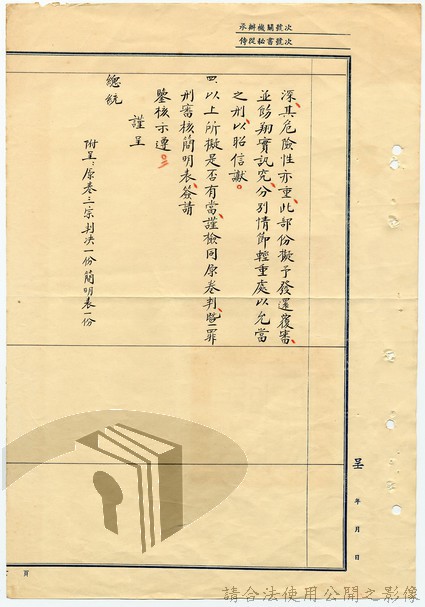 承辦機關號次
侍從秘書號次
呈
年 月 日
深、其危險性亦重、此部份擬予發還覆審、
並飭翔實訊究、分別情節輕重處以允當
之刑、以昭信讞。
四、以上所擬是否有當、謹檢同原卷判、暨罪
刑審核簡明表、簽請
鑒核示遵。
謹呈
總統
附呈：原卷三宗判決一份簡明表一份
頁
請合法使用公開之影像